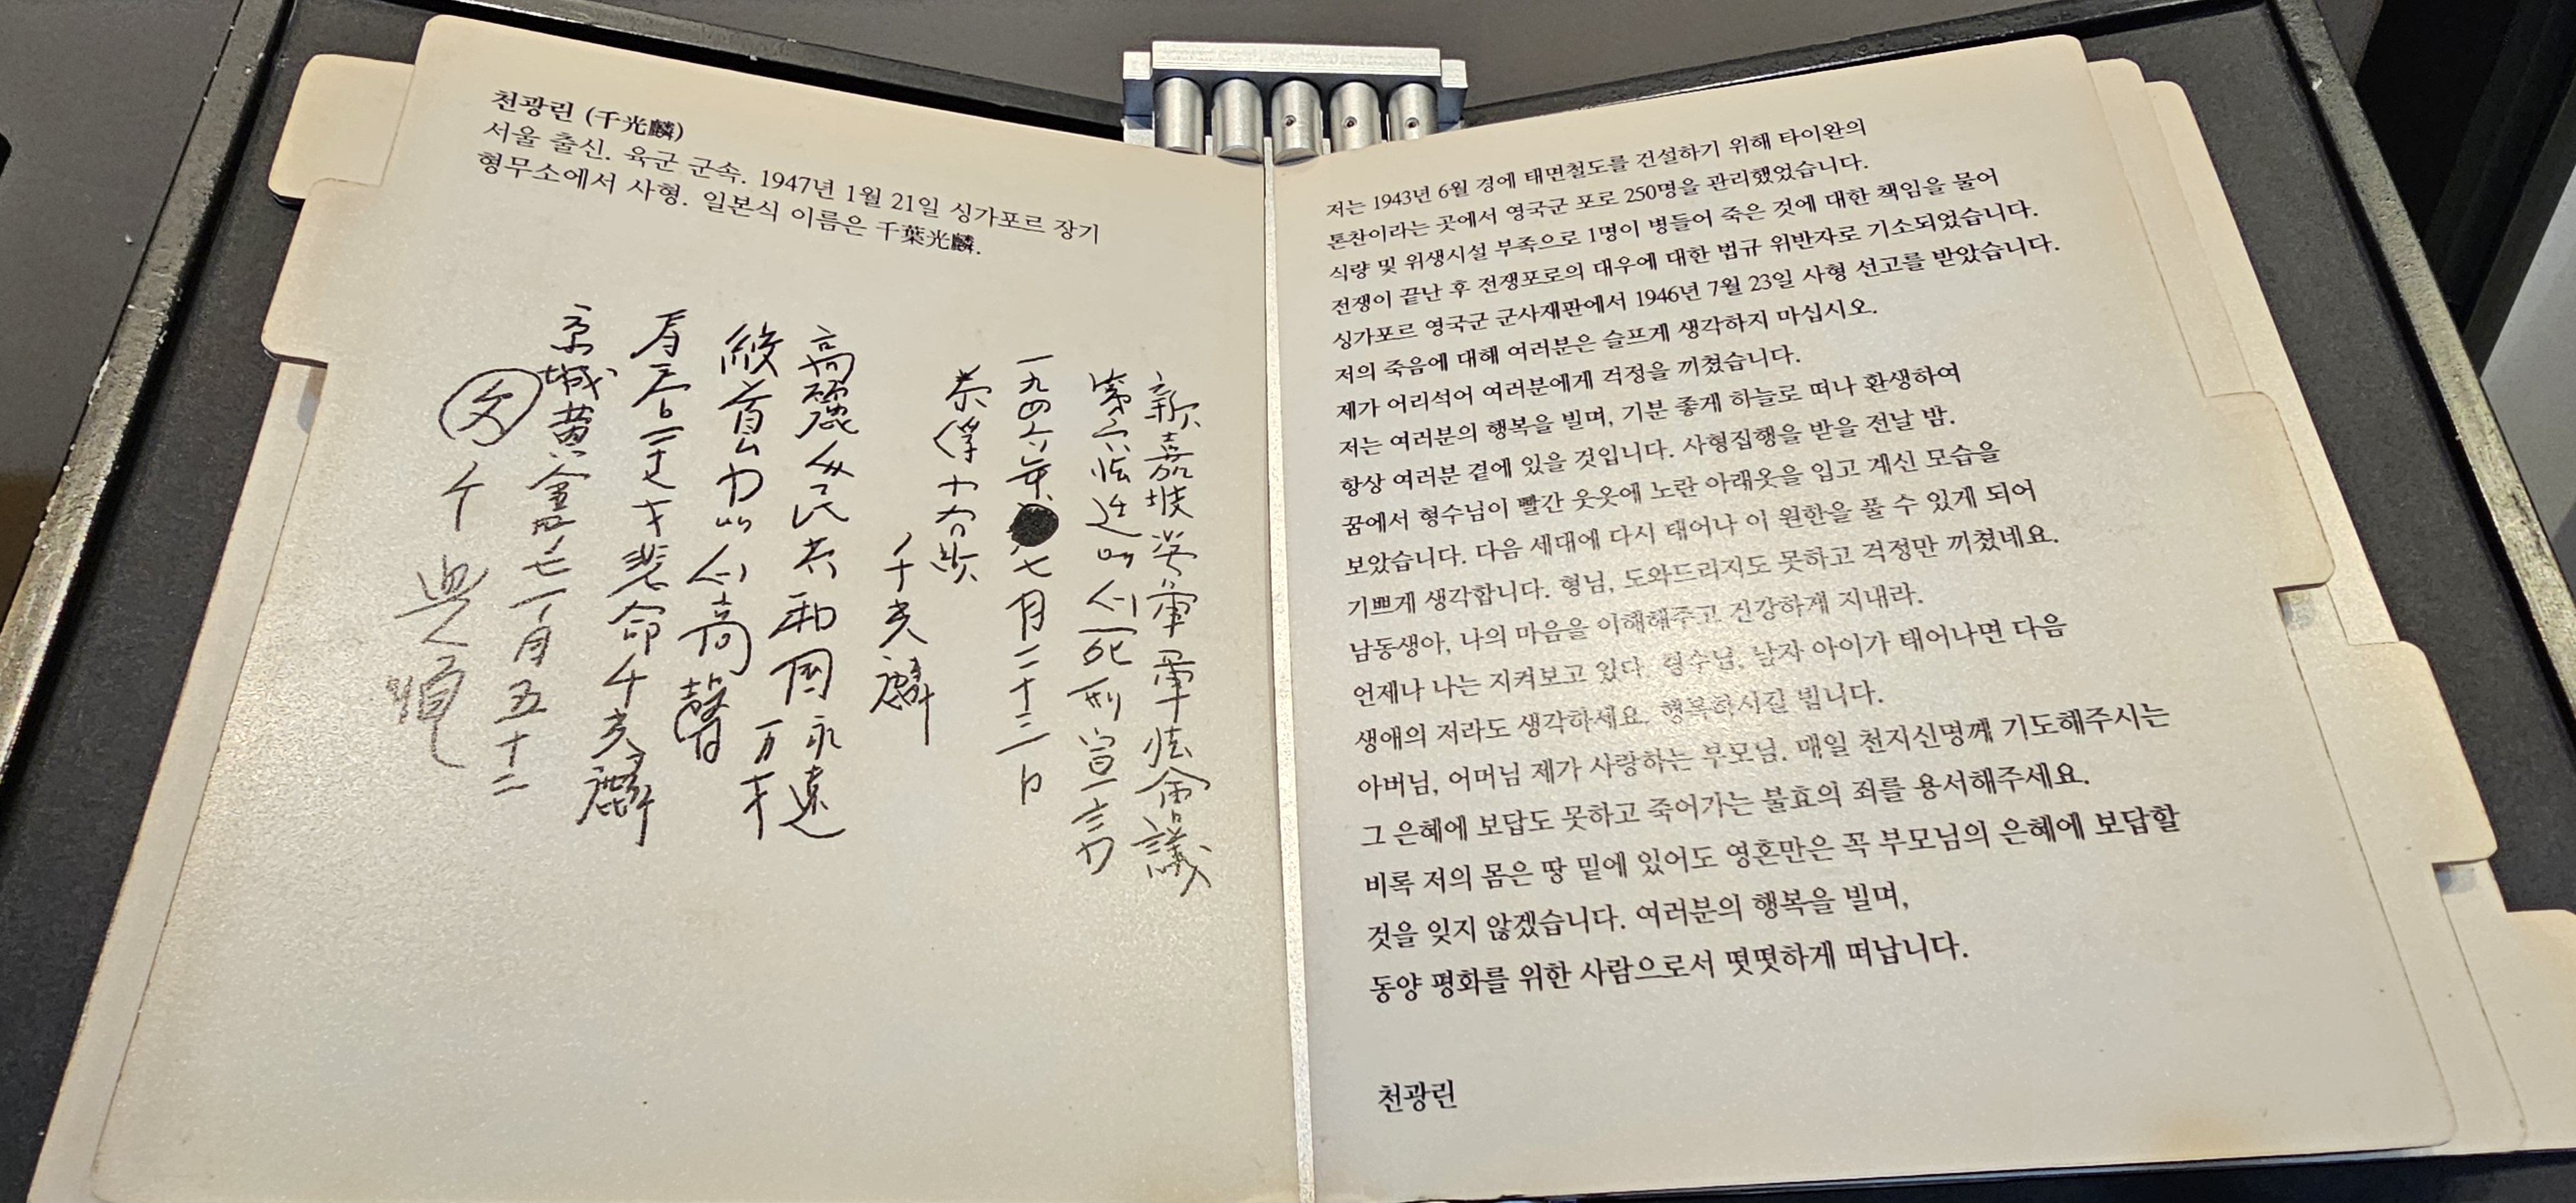 천광린 (千光麟)
서울 출신. 육군 군속. 1947년 1월 21일 싱가포르 장기
형무소에서 사형. 일본식 이름은 千葉光麟.
新嘉坡英軍軍法会議
第六法廷
死刑宣言
一九四六年七月二十三日
千光麟
高麗人民共和国永遠
万才
絞首台
高聲
千光麟
京城黄金町七丁目五十二
父 千興順
저는 1943년 6월 경에 태면철도를 건설하기 위해 타이완의
톤찬이라는 곳에서 영국군 포로 250명을 관리했었습니다.
식량 및 위생시설 부족으로 1명이 병들어 죽은 것에 대한 책임을 물어
전쟁이 끝난 후 전쟁포로의 대우에 대한 법규 위반자로 기소되었습니다.
싱가포르 영국군 군사재판에서 1946년 7월 23일 사형 선고를 받았습니다.
저의 죽음에 대해 여러분은 슬프게 생각하지 마십시오.
제가 어리석어 여러분에게 걱정을 끼쳤습니다.
저는 여러분의 행복을 빌며, 기분 좋게 하늘로 떠나 환생하여
항상 여러분 곁에 있을 것입니다. 사형집행을 받을 전날 밤.
꿈에서 형수님이 빨간 웃옷에 노란 아래옷을 입고 계신 모습을
보았습니다. 다음 세대에 다시 태어나 이 원한을 풀 수 있게 되어
기쁘게 생각합니다. 형님, 도와드리지도 못하고 걱정만 끼쳤네요.
남동생아, 나의 마음을 이해해주고 건강하게 지내라.
언제나 나는 지켜보고 있다. 형수님, 남자 아이가 태어나면 다음
생애의 저라도 생각하세요. 행복하시길 빕니다.
아버님, 어머님 제가 사랑하는 부모님. 매일 천지신명께 기도해주시는
그 은혜에 보답도 못하고 죽어가는 불효의 죄를 용서해주세요.
비록 저의 몸은 땅 밑에 있어도 영혼만은 꼭 부모님의 은혜에 보답할
것을 잊지 않겠습니다. 여러분의 행복을 빌며,
동양 평화를 위한 사람으로서 떳떳하게 떠납니다.
천광린